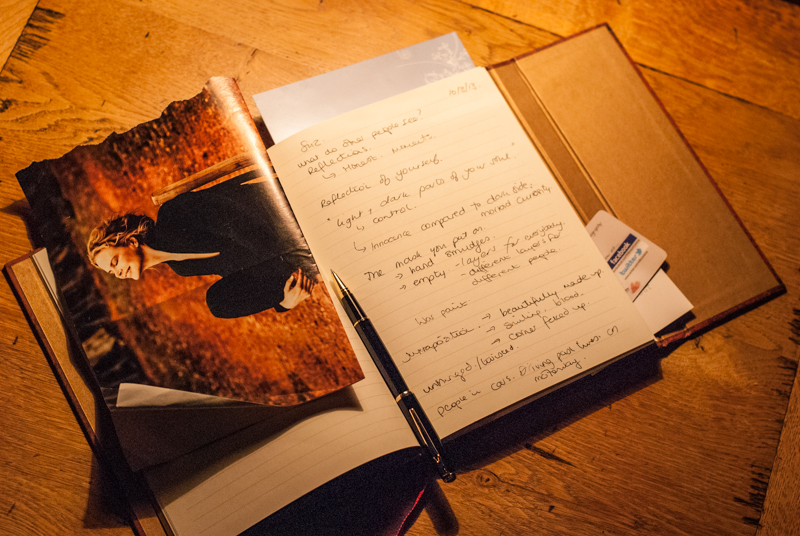 what do other people see?
Reflections.
↳ Honest. moments.
Reflection of yourself.
"Light + dark parts of your soul."
↳ control.
↳ Innocence compared to dark side.
morbid curiosity
The mask you put on
→ hand smudges.
→ empty - layers for everybody.
- different layers for
different people
War paint.
Juxtaposition. → beautifully made up
→ smiling, blood.
→ corner up.
unhinged /
People in cars. Driving past lives. on
motorway.
facebook
twitter